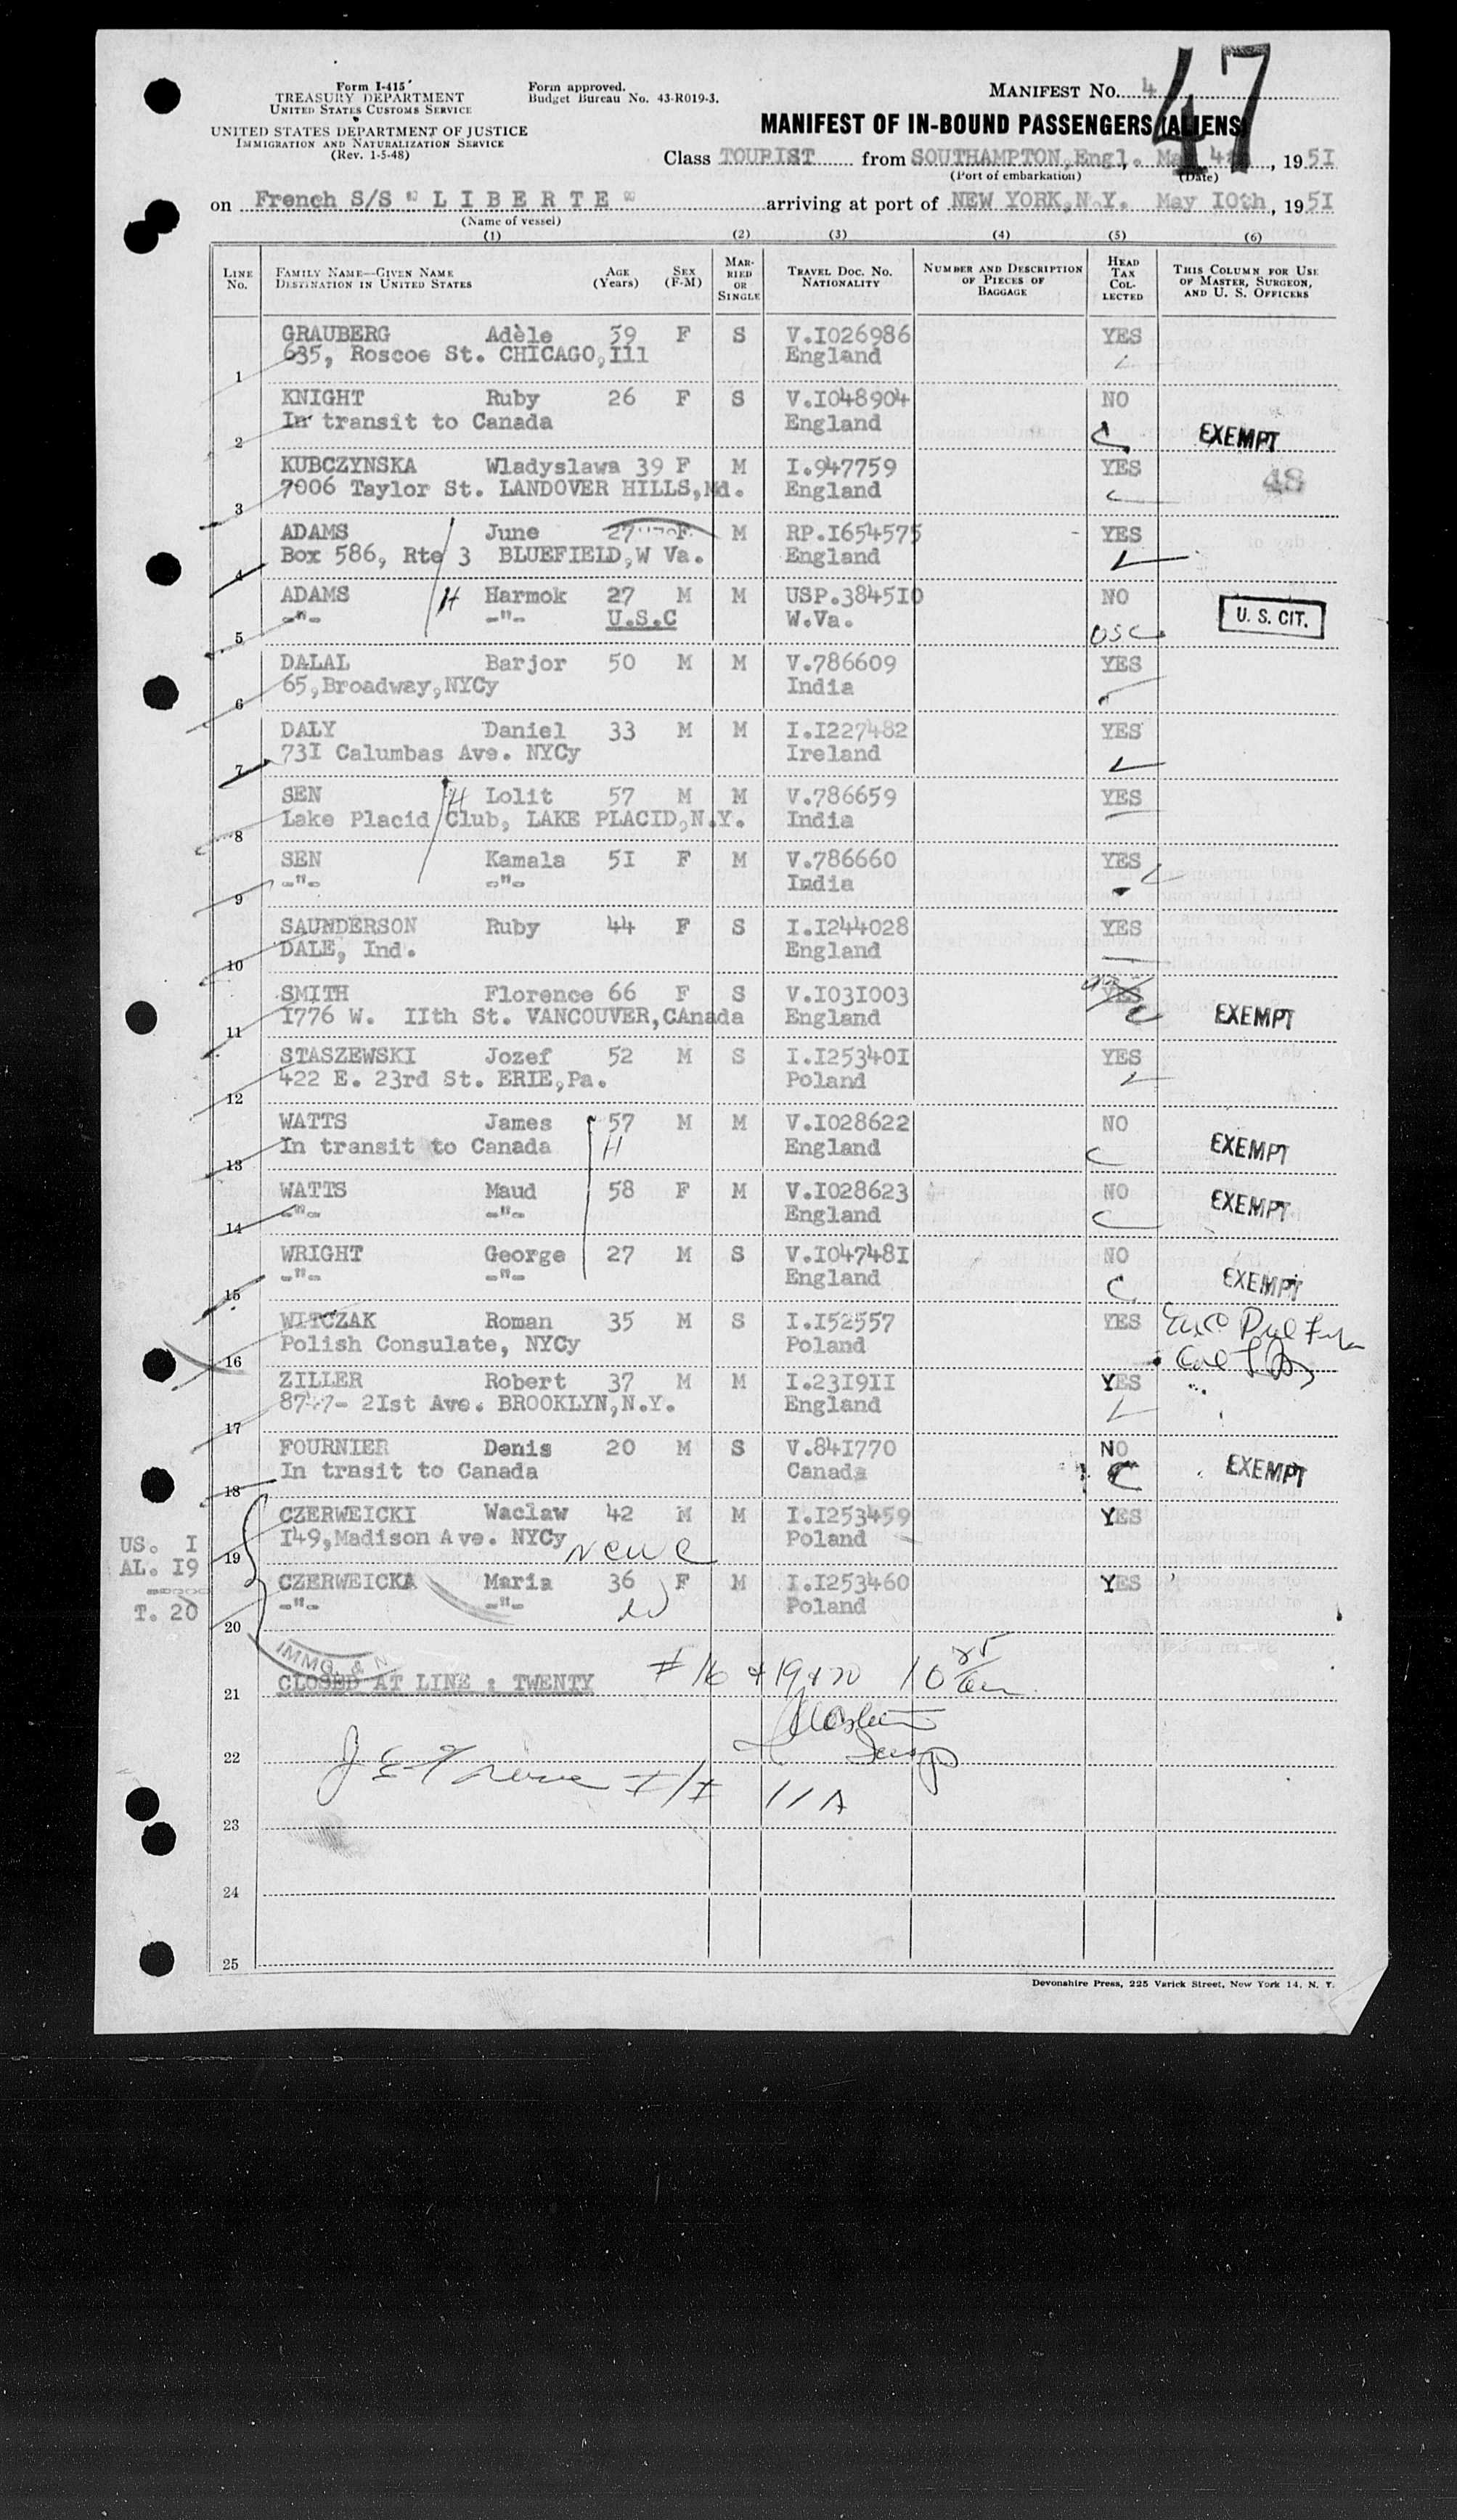 Form I-415
TREASURY DEPARTMENT
UNITED STATES CUSTOMS SERVICE
UNITED STATES DEPARTMENT OF JUSTICE
IMMIGRATION AND NATURALIZATION SERVICE
(Rev. 1-5-48)
Form approved.
Budget Bureau No. 43-R019-3.
MANIFEST NO. 4
47
MANIFEST OF IN-BOUND PASSENGERS (ALIENS)
Class TOURIST from SOUTHAMPTON,Engl., May 4th, 1951
(Port of embarkation) (Date)
on French S/S " L I B E R T E " arriving at port of NEW YORK,N.Y. May I0th, 1951
(Name of vessel)
(1) (2) (3) (4) (5) (6)
LINE NO. FAMILY NAME—GIVEN NAME DESTINATION IN UNITED STATES AGE (Years) SEX (F-M) MARRIED OR SINGLE TRAVEL DOC. NO. NATIONALITY NUMBER AND DESCRIPTION OF PIECES OF BAGGAGE HEAD TAX COLLECTED THIS COLUMN FOR USE OF MASTER, SURGEON, AND U. S. OFFICERS
GRAUBERG Adèle 59 F S V.I026986 YES
1 635, Roscoe St. CHICAGO,Ill England
KNIGHT Ruby 26 F S V.I048904 NO
2 In transit to Canada England C EXEMPT
KUBCZYNSKA Wladyslawa 39 F M I.947759 YES 48
3 7006 Taylor St. LANDOVER HILLS,Md. England
ADAMS June 27 F M RP.I654575 YES
4 Box 586, Rte 3 BLUEFIELD,W Va. England
ADAMS H Harmok 27 M M USP.3845I0 NO
5 -"- -"- U.S.C W.Va. USC U. S. CIT.
DALAL Barjor 50 M M V.786609 YES
6 65,Broadway,NYCy India
DALY Daniel 33 M M I.I227482 YES
7 73I Calumbas Ave. NYCy Ireland
SEN H Lolit 57 M M V.786659 YES
8 Lake Placid Club, LAKE PLACID,N.Y. India
SEN Kamala 5I F M V.786660 YES
9 -"- -"- India
SAUNDERSON Ruby 44 F S I.I244028 YES
10 DALE, Ind. England
SMITH Florence 66 F S V.I03I003 YES
11 I776 W. IIth St. VANCOUVER,CAnada England C EXEMPT
STASZEWSKI Jozef 52 M S I.I25340I YES
12 422 E. 23rd St. ERIE,Pa. Poland
WATTS James 57 M M V.I028622 NO
13 In transit to Canada H England C EXEMPT
WATTS Maud 58 F M V.I028623 NO
14 -"- -"- England C EXEMPT
WRIGHT George 27 M S V.I04748I NO
15 -"- -"- England C EXEMPT
WITCZAK Roman 35 M S I.I52557 YES
16 Polish Consulate, NYCy Poland
ZILLER Robert 37 M M I.23I9II YES
17 8747- 2Ist Ave. BROOKLYN,N.Y. England
FOURNIER Denis 20 M S V.84I770 NO
18 In trnsit to Canada Canada C EXEMPT
CZERWEICKI Waclaw 42 M M I.I253459 YES
19 I49,Madison Ave. NYCy Poland
CZERWEICKA Maria 36 F M I.I253460 YES
20 -"- -"- Poland
US. I
AL. I9
T. 20
IMMG. & N
21 CLOSED AT LINE : TWENTY # 16 & 19 & 20 10 25 am
22
11 A
23
24
25
Devonshire Press, 225 Varick Street, New York 14, N. Y.